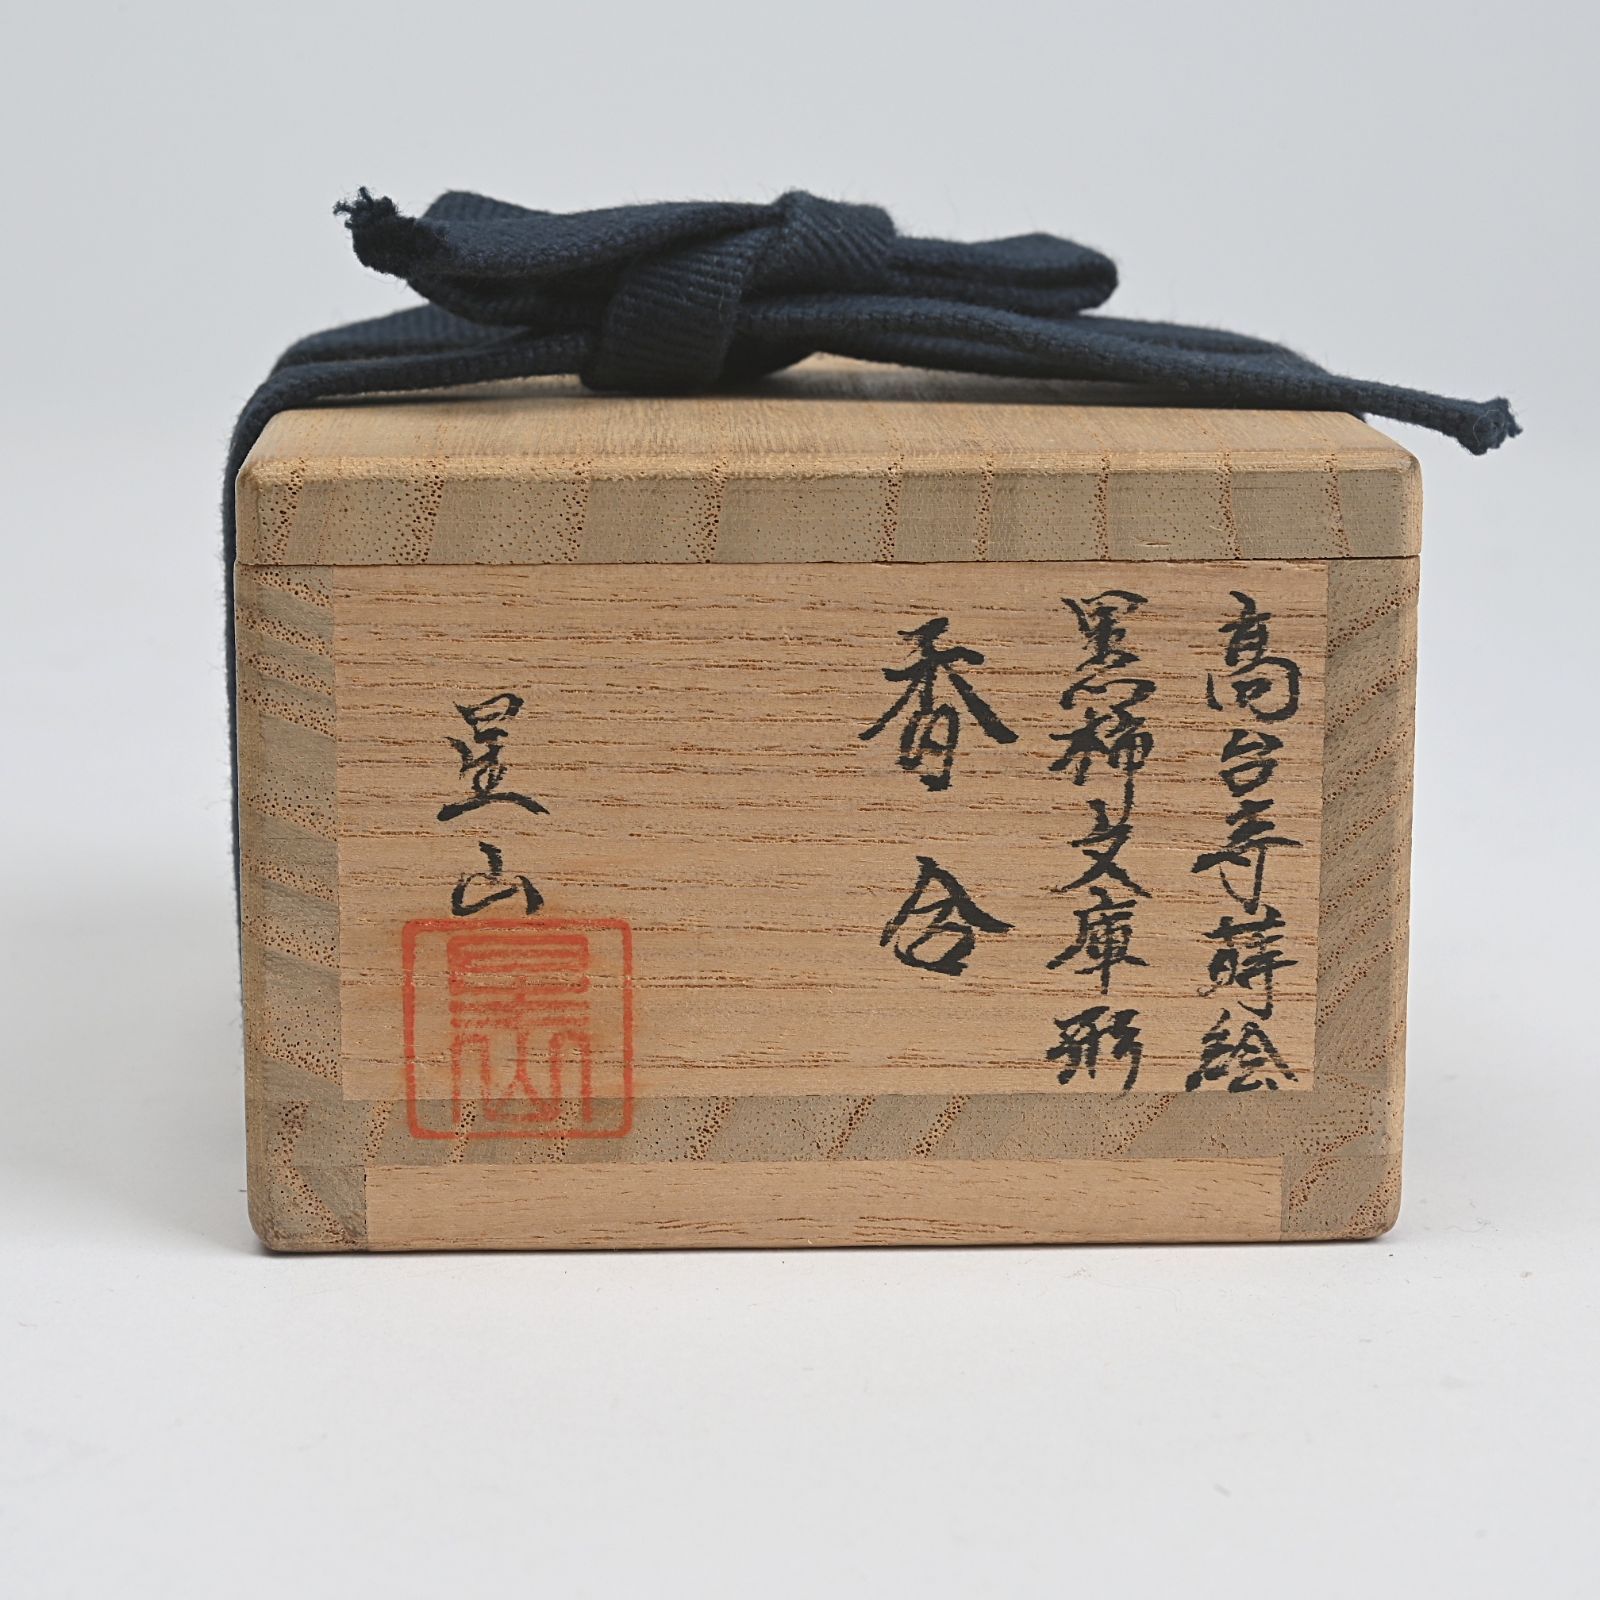 高台寺蒔絵
黒柿文庫形
香合
星山